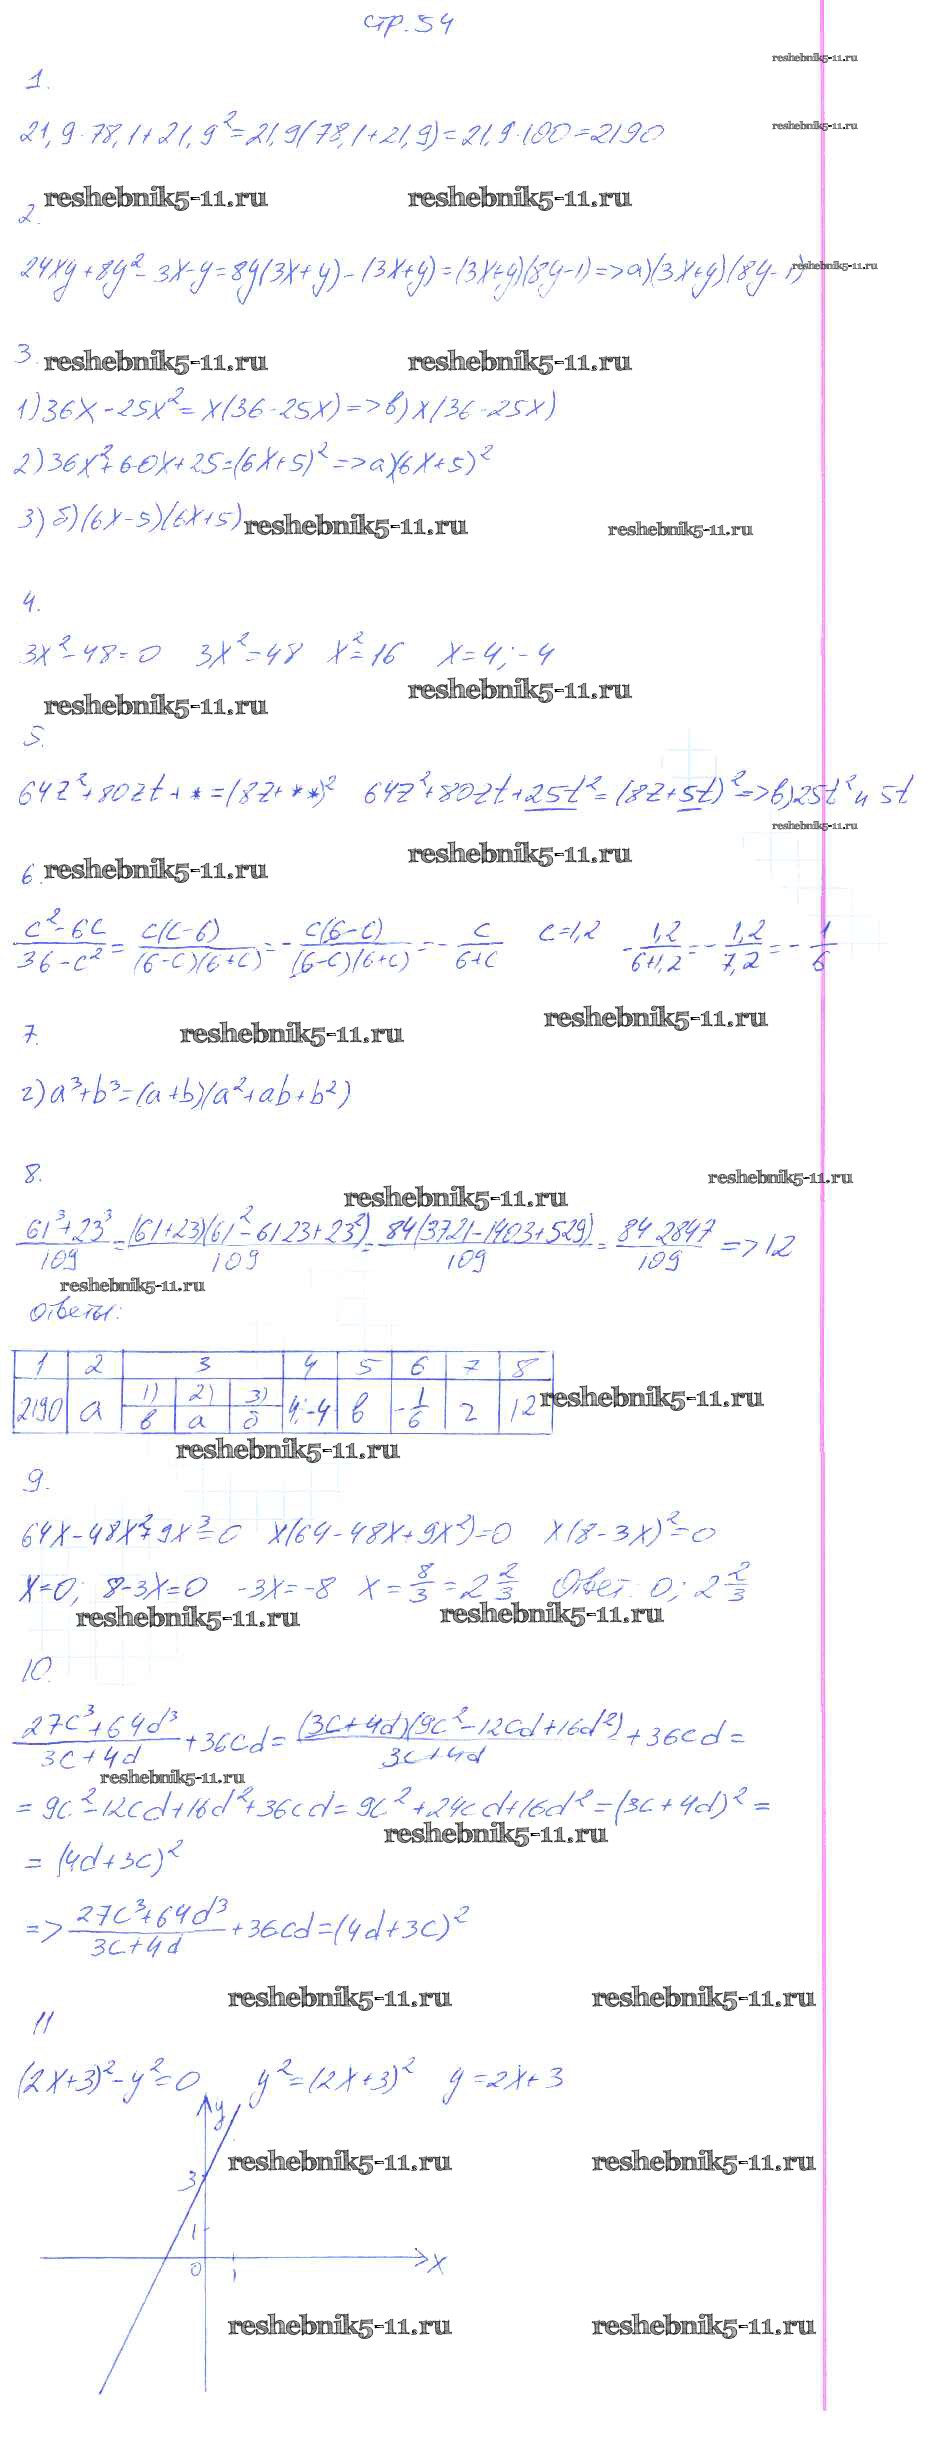 стр. 54
reshebnik5-11.ru
1.
21,9·78,1+21,9²=21,9(78,1+21,9)=21,9·100=2190
reshebnik5-11.ru
reshebnik5-11.ru reshebnik5-11.ru
2.
24xy+8y²-3x-y=8y(3x+y)-(3x+y)=(3x+y)(8y-1)=>а)(3x+y)(8y-1)
reshebnik5-11.ru
3.
reshebnik5-11.ru reshebnik5-11.ru
1)36x-25x²=x(36-25x)=>в)x(36-25x)
2)36x²+60x+25=(6x+5)²=>а)(6x+5)²
3) б)(6x-5)(6x+5)
reshebnik5-11.ru reshebnik5-11.ru
4.
3x²-48=0 3x²=48 x²=16 x=4;-4
reshebnik5-11.ru reshebnik5-11.ru
5.
64z²+80zt+*=(8z+**)² 64z²+80zt+25t²=(8z+5t)²=>в)25t² и 5t
reshebnik5-11.ru
6.
reshebnik5-11.ru reshebnik5-11.ru
(c²-6c)/(36-c²)=(c(c-6))/((6-c)(6+c))=-(c(6-c))/((6-c)(6+c))=-c/(6+c) c=1,2 -1,2/(6+1,2)=-1,2/7,2=-1/6
7.
reshebnik5-11.ru reshebnik5-11.ru
г)a³+b³=(a+b)(a²+ab+b²)
8.
reshebnik5-11.ru reshebnik5-11.ru
(61³+23³)/109=((61+23)(61²-61·23+23²))/109=(84(3721-1403+529))/109=(84·2847)/109=>12
reshebnik5-11.ru
ответы:
1 2 3 4 5 6 7 8
2190 а 1) 2) 3) 4;-4 в -1/6 г 12
в а б
reshebnik5-11.ru
reshebnik5-11.ru
9.
64x-48x²+9x³=0 x(64-48x+9x²)=0 x(8-3x)²=0
x=0; 8-3x=0 -3x=-8 x=8/3=2 2/3 Ответ: 0; 2 2/3
reshebnik5-11.ru reshebnik5-11.ru
10.
(27c³+64d³)/(3c+4d)+36cd=((3c+4d)(9c²-12cd+16d²))/(3c+4d)+36cd=
reshebnik5-11.ru
=9c²-12cd+16d²+36cd=9c²+24cd+16d²=(3c+4d)²=
reshebnik5-11.ru
=(4d+3c)²
=>(27c³+64d³)/(3c+4d)+36cd=(4d+3c)²
reshebnik5-11.ru reshebnik5-11.ru
11
(2x+3)²-y²=0 y²=(2x+3)² y=2x+3
y
reshebnik5-11.ru reshebnik5-11.ru
3
1
0 1 x
reshebnik5-11.ru reshebnik5-11.ru